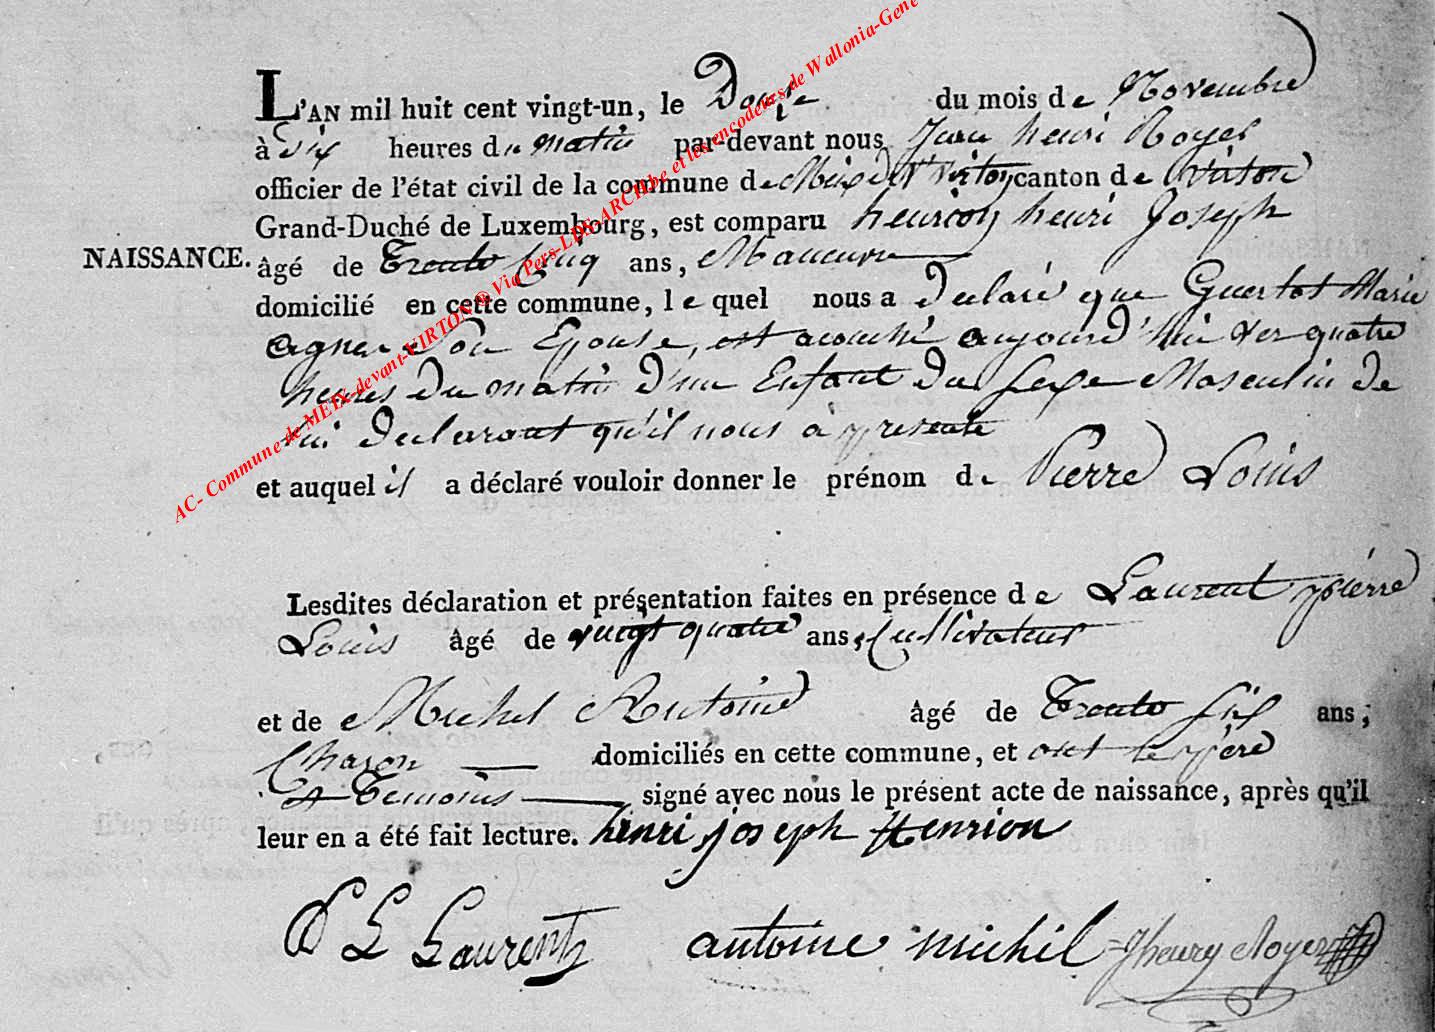 L'AN mil huit cent vingt-un, le Douze du mois de Novembre
à Six heures du matin par-devant nous Jean henri Royer
officier de l'état civil de la commune de Meix dvt Virton canton de Virton
Grand-Duché de Luxembourg, est comparu henrion henri Joseph
NAISSANCE. âgé de Trente Cinq ans, Maneuvre
domicilié en cette commune, le quel nous a declaré que Guertot Marie
agnes Son Epouse, est acouché aujourd'hui ver quatre
heures du matin d'un Enfant du Sexe Masculin de
lui declarant qu'il nous à presenté
et auquel il a déclaré vouloir donner le prénom de Pierre Louis
Lesdites déclaration et présentation faites en présence de Laurent pierre
Louis âgé de vingt quatre ans, Cultivateur
et de Michel Antoine âgé de Trente Six ans,
Charon domiciliés en cette commune, et ont le père
et Temoins signé avec nous le présent acte de naissance, après qu'il
leur en a été fait lecture. henri joseph Henrion
P L Laurent antoine michel Jhenry Royer
AC- Commune de MEIX-devant-VIRTON @ Via Pers-LDS-ARCH.be et les encodeurs de Wallonia-Gene